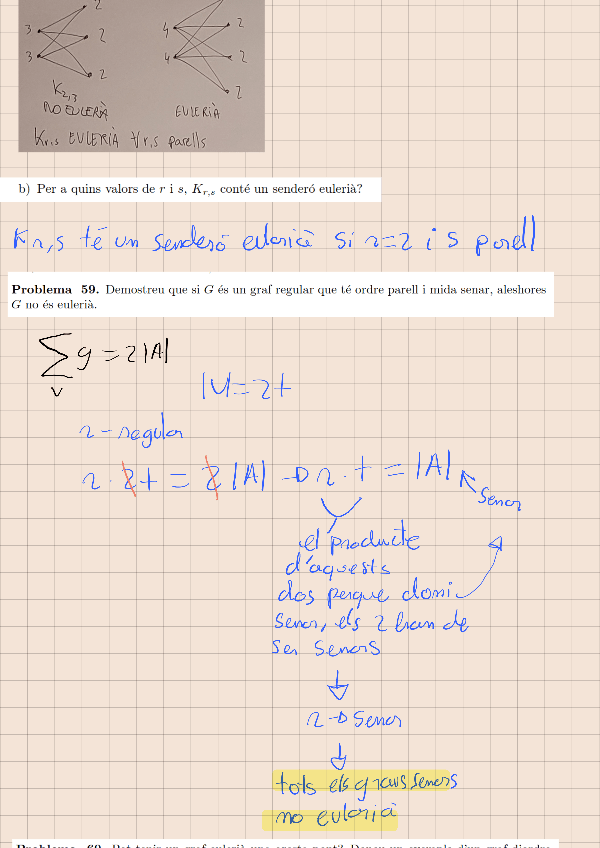 2
3
2
3
2
K2,3
NO EULERIÀ
4
2
4
2
2
EULERIÀ
Kr,s EULERIÀ ∀r,s parells
b) Per a quins valors de r i s, Kr,s conté un senderó eulerià?
Kr,s té un senderó eulerià si r=2 i s parell
Problema 59. Demostreu que si G és un graf regular que té ordre parell i mida senar, aleshores
G no és eulerià.
∑ g = 2|A|
V
|V|=2t
r-regular
r·2t = 2|A| → r·t = |A|
Senar
el producte
d'aquests
dos perque doni
senar, els 2 han de
ser senars
↓
r → senar
↓
tots els graus senars
no eulerià